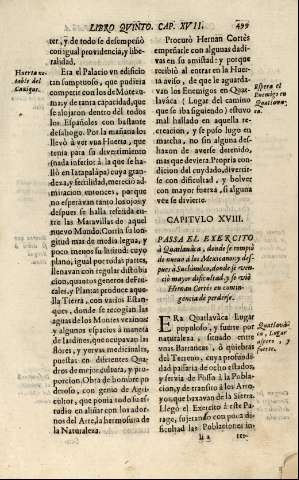 LIBRO QVINTO. CAP. XVII. 499
ter, y de todo se desempeñò
con igual providencia, y libe-
ralidad.
Huerta no-
table del
Cazique.
Era el Palacio vn edificio
tan sumptuoso, que pudiera
competir con los de Motezu-
ma, y de tanta capacidad, que
se alojaron dentro dèl todos
los Españoles con bastante
desahogo. Por la mañana los
llevò à ver vna Huerta, que
tenia para su divertimiento
(nada inferior à la que se ha-
llò en Iztapalàpa) cuya gran-
deza, y fertilidad, mereciò ad-
miracion entonces, porque
no esperavan tanto los ojos; y
despues se halla referida en-
tre las Maravillas de aquel
nuevo Mundo. Corria su lon-
gitud mas de media legua, y
poco menos su latitud: cuyo
plano, igual por todas partes,
llenavan con regular distribu-
cion, quantos generos de Fru-
tales, y Plantas produce aque-
lla Tierra, con varios Estan-
ques, donde se recogian las
aguas de los Montes vezinos
y algunos espacios à manera
de Jardines, que ocupavan las
flores, y yervas medicinales,
puestas en diferentes Qua-
dros de mejor cultura, y pro-
porcion. Obra de hombre po-
deroso, con genio de Agri-
cultor, que ponia todo su es-
tudio en aliñar con los ador-
nos del Arte, la hermosura de
la Naturaleza.
Procurò Hernan Cortès
empeñarle con algunas dadi-
vas en su amistad: y porque
recibiò al entrar en la Huerta
aviso, de que le aguarda-
van los Enemigos en Quat-
lavàca (Lugar del camino
que se iba siguiendo) estuvo
mal hallado en aquella re-
creacion, y se puso luego en
marcha, no sin alguna des-
hazon de averse detenido,
mas que deviera. Propria con-
dicion del cuydado, divertir-
se con dificultad, y bolver
con mayor fuerza, si alguna
vez se divierte.
Espera el
Enemigo en
Quatlava-
ca.
CAPITVLO XVIII.
PASSA EL EXERCITO
à Quatlavàca, donde se rompiò
de nuevo à los Mexicanos; y des-
pues à Suchimilco, donde se ven-
ciò mayor dificultad, y se viò
Hernan Cortès en con-
tingencia de perderse.
ERa Quatlavàca Lugar
populoso, y fuerte por
naturaleza, situado entre
vnas Barrancas, ò quiebras
del Terreno, cuya profundi-
dad passaria de ocho estados,
y servia de Fosso à la Pobla-
cion, y de transito à los Arro-
yos, que baxavan de la Sierra.
Llegò el Exercito à este Pa-
rage, sujetando con poca di-
ficultad las Poblaciones in-
Quatlavà-
ca, Lugar
aspero, y
fuerte.
ter-